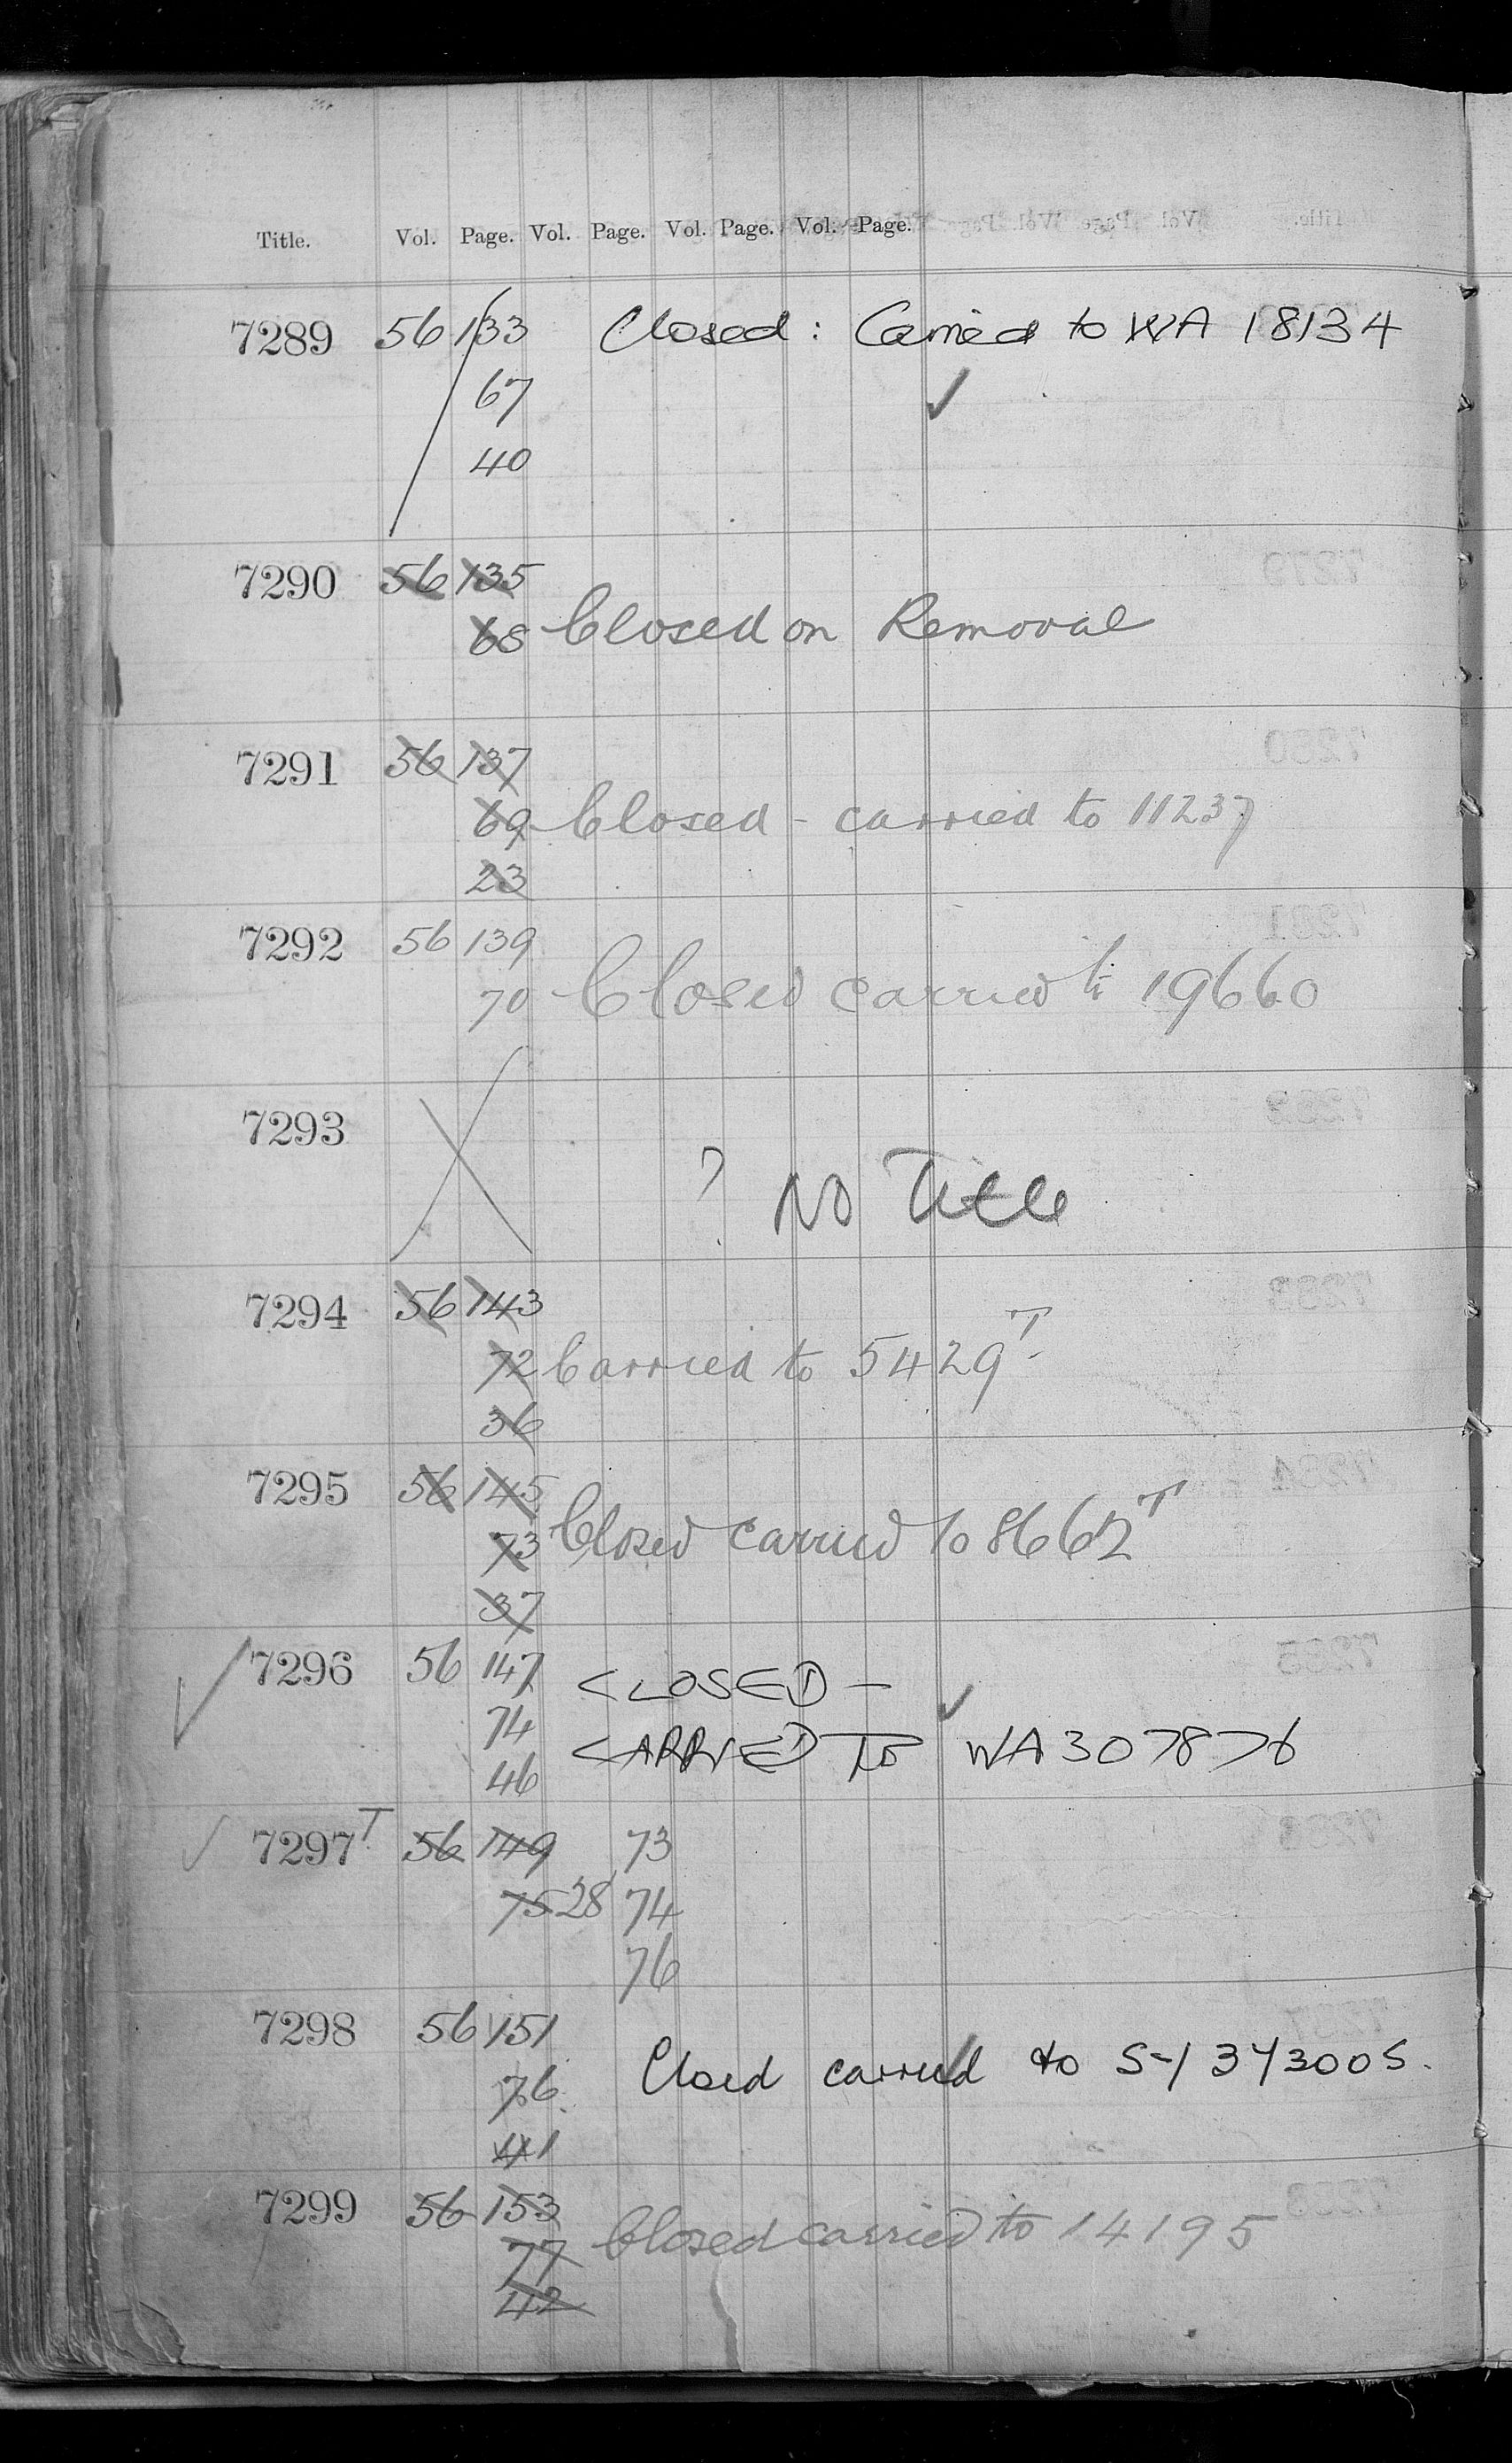 Title. Vol. Page. Vol. Page. Vol. Page. Vol. Page.
7289 56 133 Closed: Carried to WA 18134
67
40
7290 56 135
68 Closed on Removal
7291 56 137
69 Closed - carried to 11237
23
7292 56 139
70 Closed carried to 19660
7293
? No Title
7294 56 143
72 Carried to 5429T
36
7295 56 145
73 Closed carried to 8662T
37
7296 56 147 CLOSED -
74
46 CARRIED TO WA307876
7297T 56 149 73
75 28 74
76
7298 56 151
76 Closed carried to S-1 343005.
41
7299 56 153
77 Closed carried to 14195
42